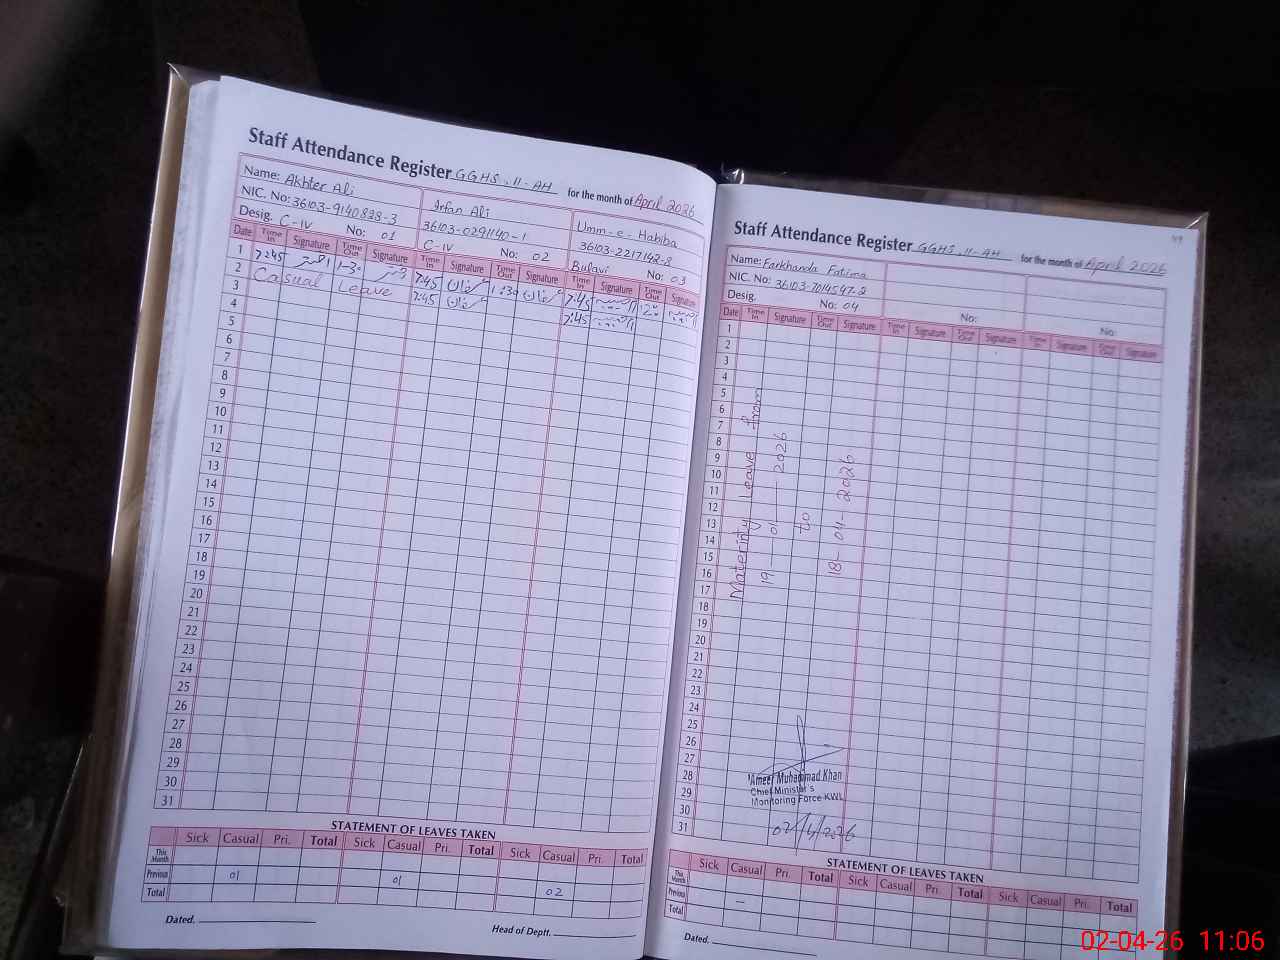 Staff Attendance Register GGHS, 11-AH for the month of April 2026
Name: Akhter Ali Irfan Ali Umm-e-Habiba
NIC. No: 36103-9140828-3 36103-0291140-1 36103-2217142-8
Desig. C-IV No: 01 C-IV No: 02 Bulavi No: 03
Date Time In Signature Time Out Signature Time In Signature Time Out Signature Time In Signature Time Out Signature
1 7:45 1-30 7:45 1:30 7:45
2 Casual Leave 7:45 7:45
3
4
5
6
7
8
9
10
11
12
13
14
15
16
17
18
19
20
21
22
23
24
25
26
27
28
29
30
31
STATEMENT OF LEAVES TAKEN
Sick Casual Pri. Total Sick Casual Pri. Total Sick Casual Pri. Total
This Month
Previous 01 01 02
Total
Dated. Head of Deptt.
49
Staff Attendance Register GGHS, 11-AH for the month of April 2026
Name: Farkhanda Fatima
NIC. No: 36103-7014597-2
Desig. No: 04 No: No:
Date Time In Signature Time Out Signature Time In Signature Time Out Signature Time In Signature Time Out Signature
1
2
3
4
5
6
7
8
9
10
11
12
13
14
15
16
17
18
19
20
21
22
23
24
25
26
27
28
29
30
31
Maternity Leave from
19-01-2026
to
18-04-2026
Ameer Muhammad Khan
Chief Minister's
Monitoring Force KWL
02/4/2026
STATEMENT OF LEAVES TAKEN
Sick Casual Pri. Total Sick Casual Pri. Total Sick Casual Pri. Total
This Month
Previous –
Total
Dated.
02-04-26 11:06